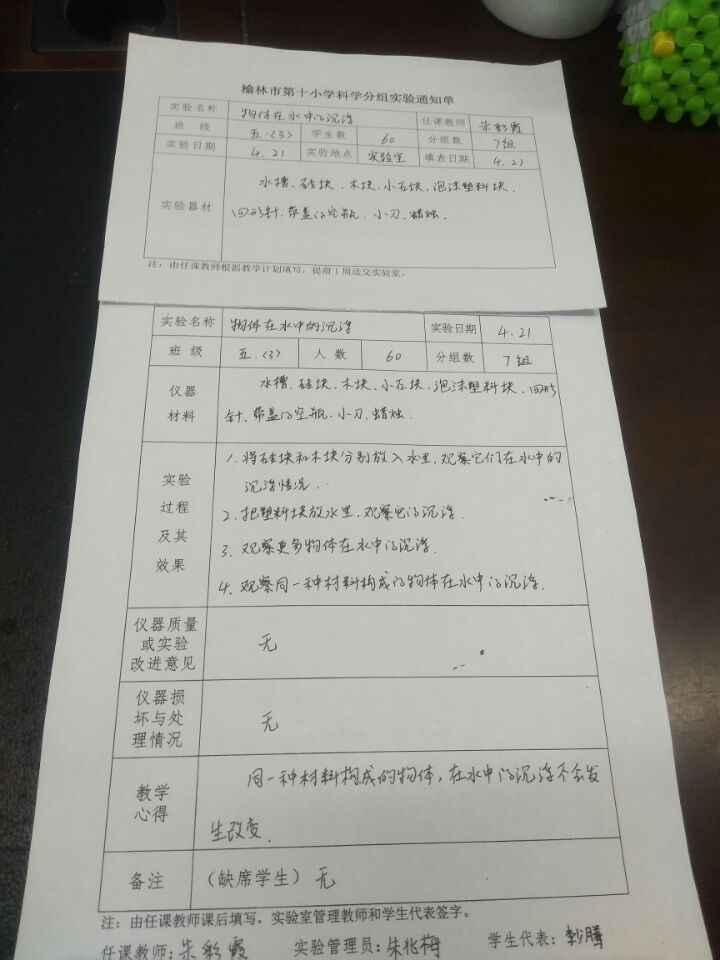 榆林市第十小学科学分组实验通知单
实验名称 物体在水中的沉浮 任课教师 朱彩霞
班 级 五.(3) 学生数 60 分组数 7组
实验日期 4.21 实验地点 实验室 填表日期 4.21
实验器材
水槽、硅块、木块、小石块,泡沫塑料块、
回形针、带盖的空瓶、小刀、蜡烛.
注:由任课教师根据教学计划填写,提前1周送交实验室。
实验名称 物体在水中的沉浮 实验日期 4.21
班 级 五.(3) 人 数 60 分组数 7组
仪器
材料
水槽、硅块、木块、小石块、泡沫塑料块、回形
针、带盖的空瓶、小刀、蜡烛.
实验
过程
及其
效果
1.将硅块和木块分别放入水里.观察它们在水中的
沉浮情况.
2.把塑料块放水里,观察它的沉浮.
3.观察更多物体在水中的沉浮.
4.观察同一种材料构成的物体在水中的沉浮.
仪器质量
或实验
改进意见
无
仪器损
坏与处
理情况
无
教学
心得
同一种材料构成的物体,在水中的沉浮不会发
生改变.
备注 (缺席学生)无
注:由任课教师课后填写,实验室管理教师和学生代表签字。
任课教师:朱彩霞 实验管理员:朱兆梅 学生代表:李腾